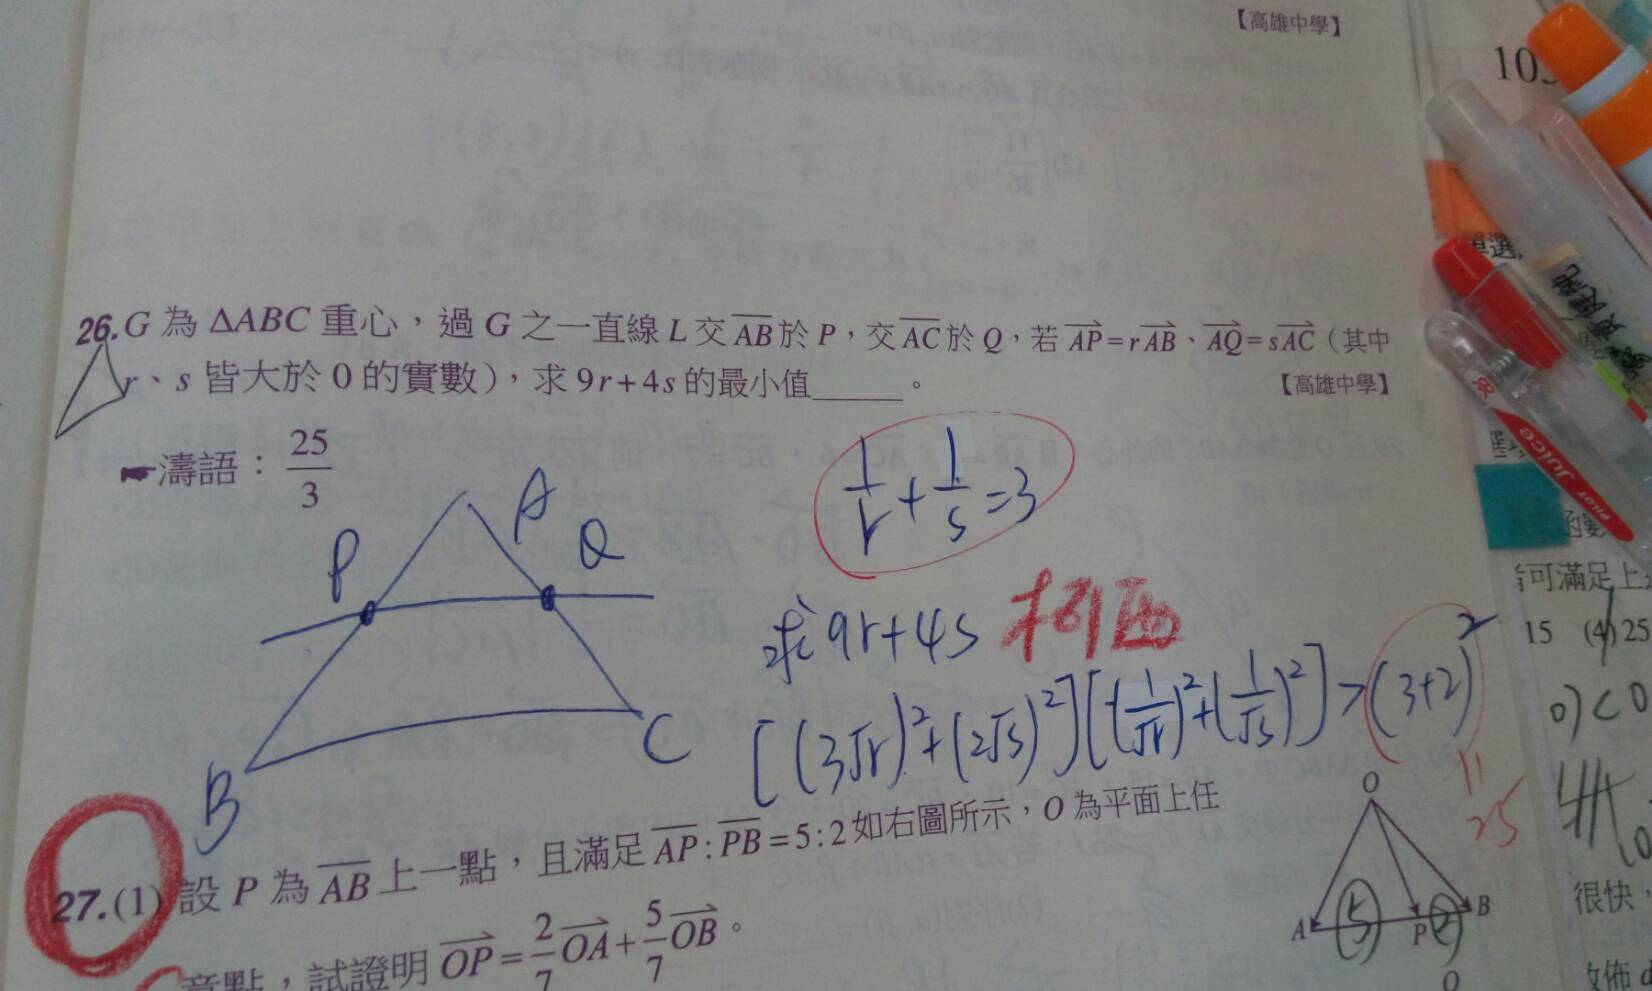 【高雄中學】
26.G 為 ΔABC 重心，過 G 之一直線 L 交 \overline{AB} 於 P，交 \overline{AC} 於 Q，若 \overrightarrow{AP}=r\overrightarrow{AB}、\overrightarrow{AQ}=s\overrightarrow{AC}（其中
r、s 皆大於 0 的實數），求 9r+4s 的最小值______。
【高雄中學】
濤語：25/3
1/r+1/s=3
A
P
Q
B
C
求 9r+4s 柯西
[(3√r)²+(2√s)²][(1/√r)²+(1/√s)²]>(3+2)²
11
25
27.(1) 設 P 為 \overline{AB} 上一點，且滿足 \overline{AP}:\overline{PB}=5:2 如右圖所示，O 為平面上任
意點，試證明 \overrightarrow{OP}=2/7\overrightarrow{OA}+5/7\overrightarrow{OB}。
O
A
5
P
2
B
O
可滿足上
15 (4) 25
0)<0
很快，
JUICE
PILOT
38